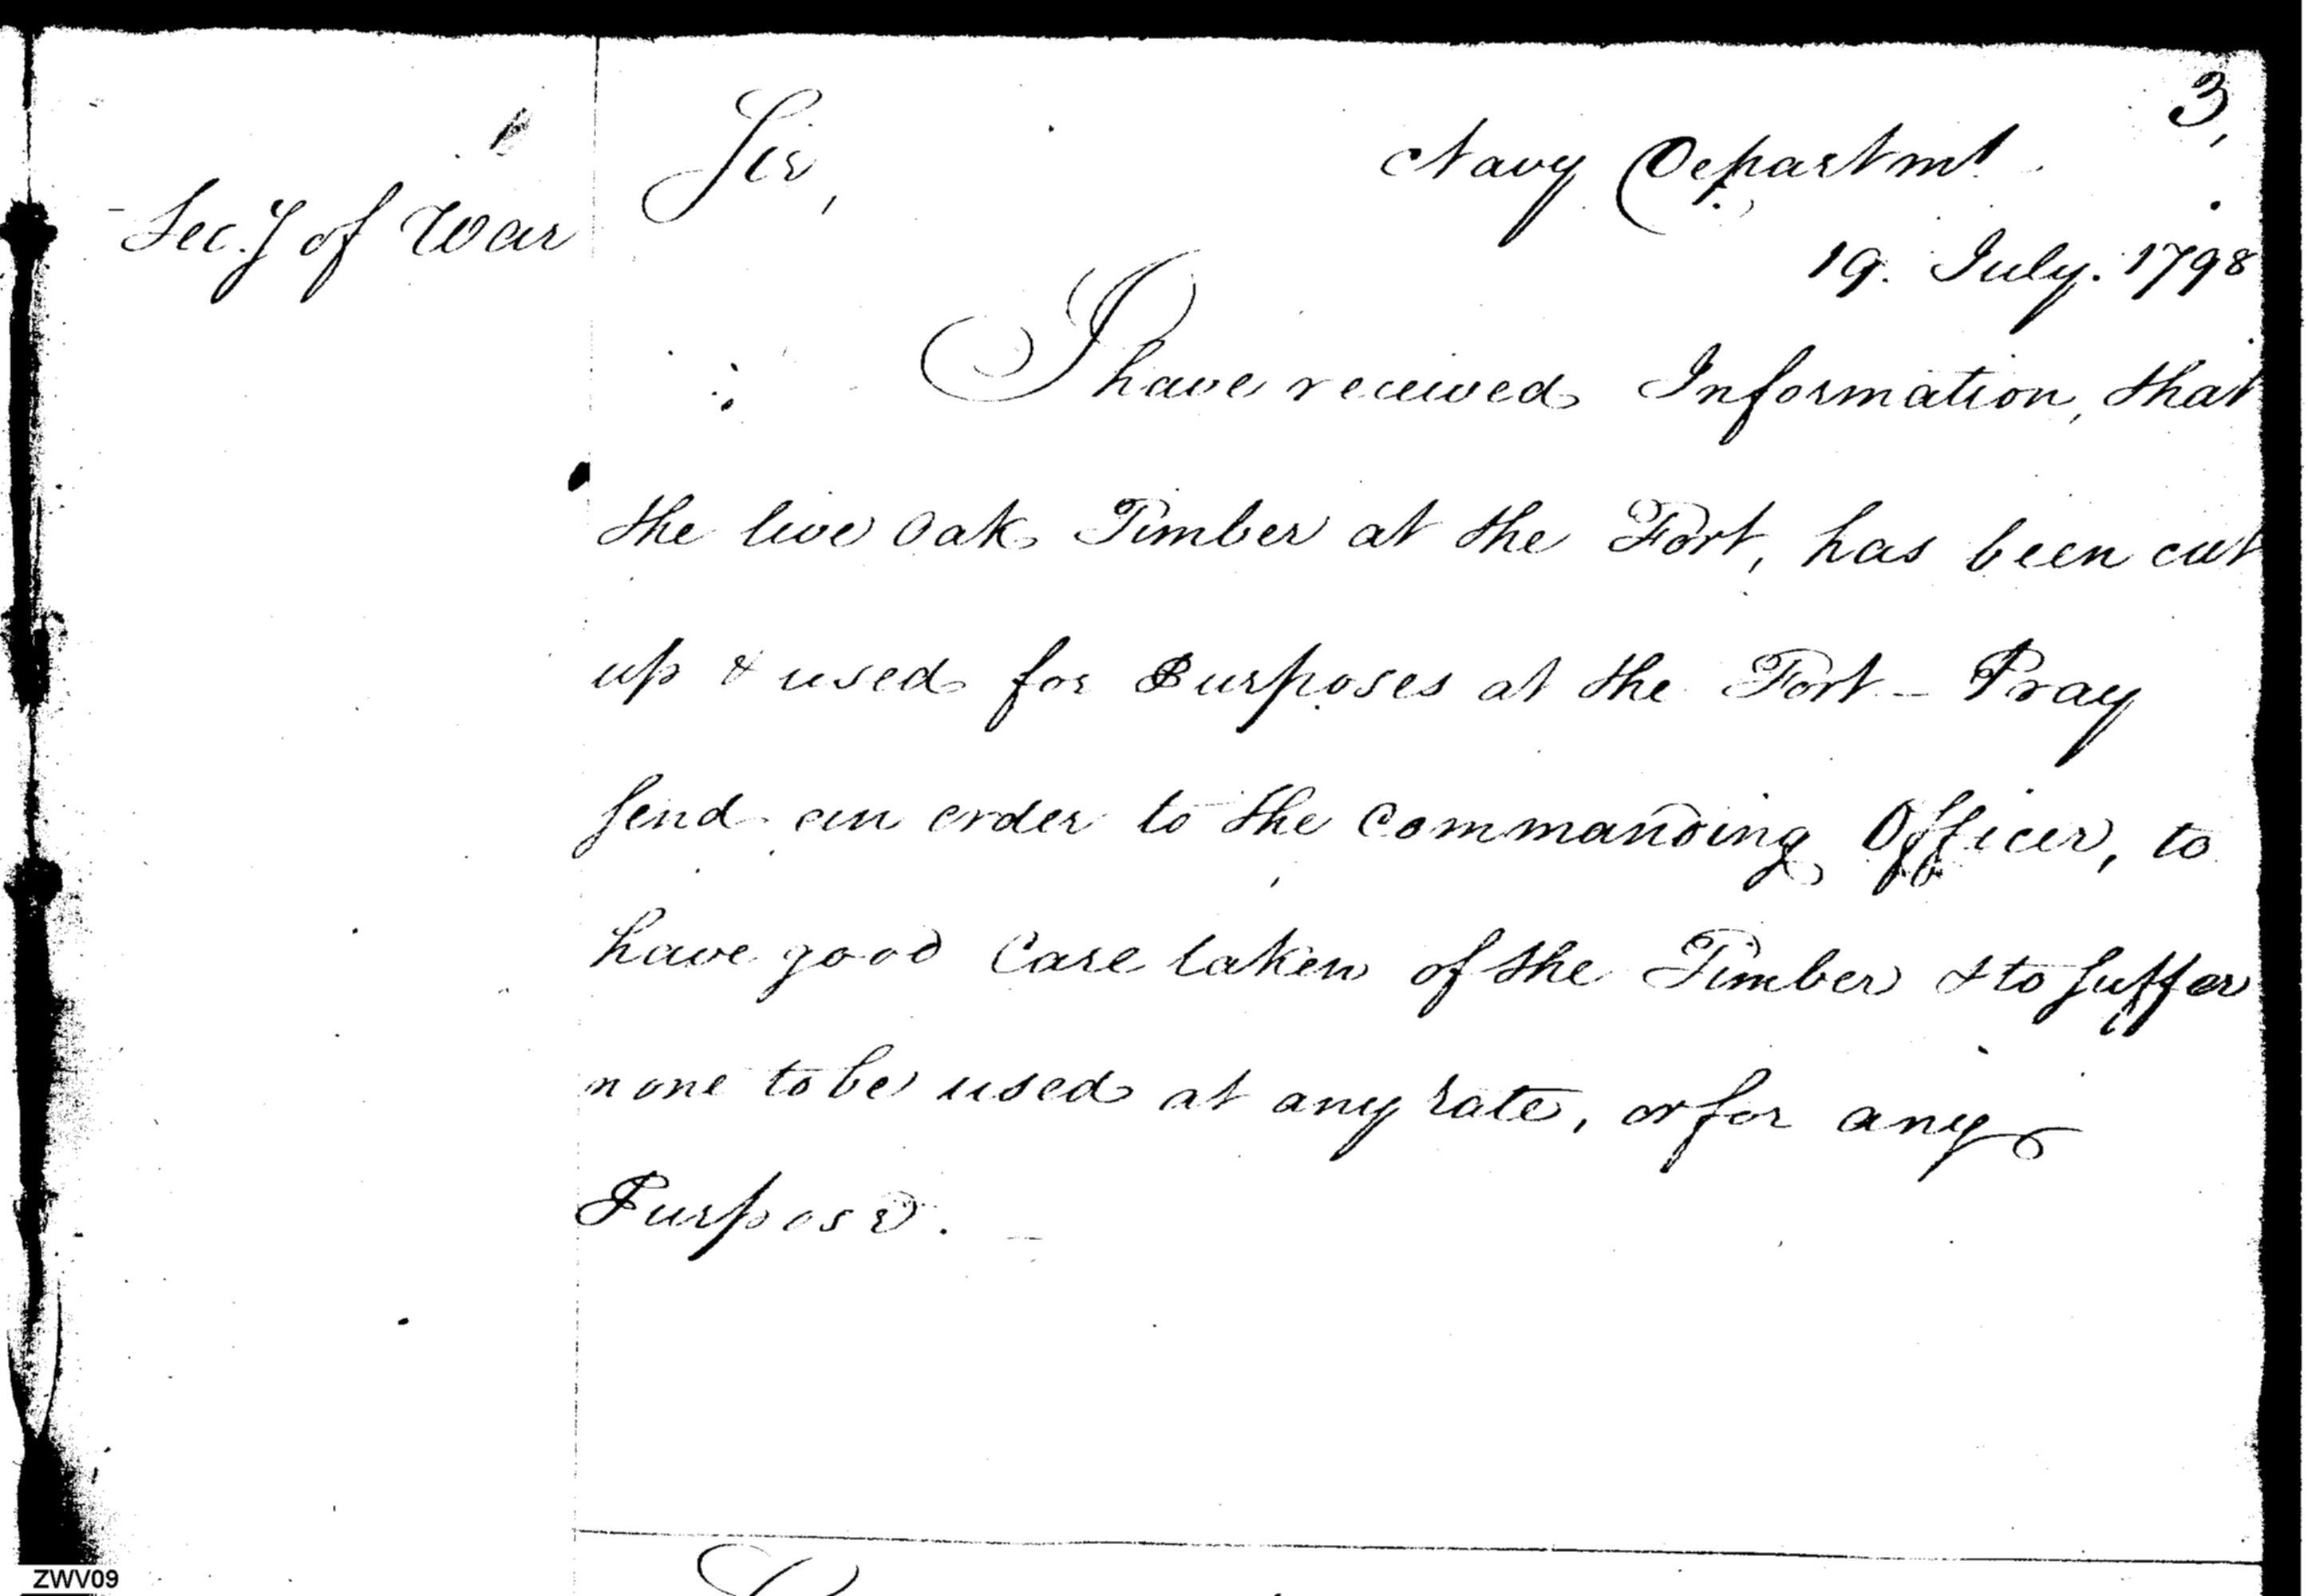 3,
Sir,
Navy Departmt
Sec.y of War
19. July. 1798
I have received Information, that
the live Oak Timber at the Fort, has been cut
up & used for Purposes at the Fort – Pray
send an order to the Commanding Officer, to
have good Care taken of the Timber & to suffer
none to be used at any rate, or for any
Purpose. –
ZWV09